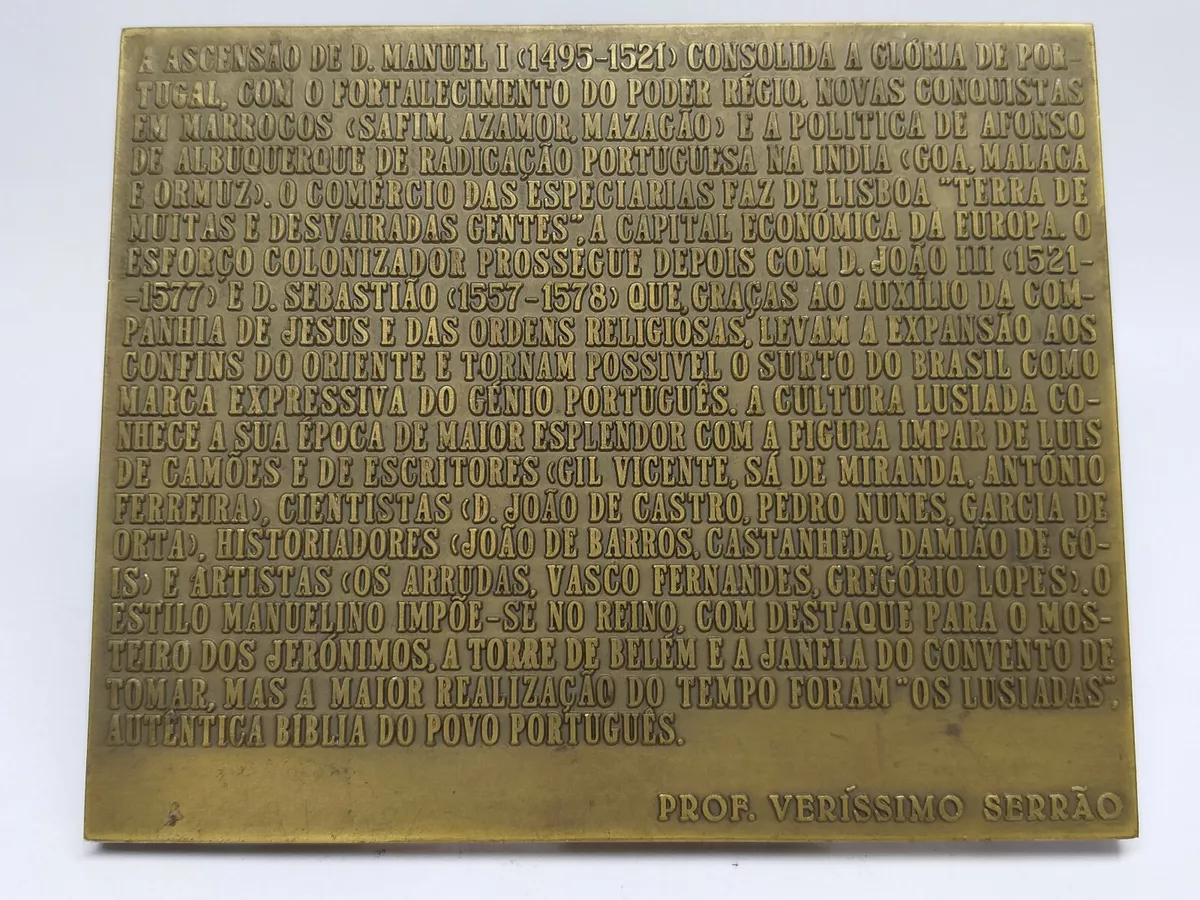 A ASCENSÃO DE D. MANUEL I (1495-1521) CONSOLIDA A GLÓRIA DE POR-
TUGAL, COM O FORTALECIMENTO DO PODER RÉGIO, NOVAS CONQUISTAS
EM MARROCOS (SAFIM, AZAMOR, MAZAGÃO) E A POLITICA DE AFONSO
DE ALBUQUERQUE DE RADICAÇÃO PORTUGUESA NA INDIA (GOA, MALACA
E ORMUZ). O COMÉRCIO DAS ESPECIARIAS FAZ DE LISBOA "TERRA DE
MUITAS E DESVAIRADAS GENTES", A CAPITAL ECONÓMICA DA EUROPA. O
ESFORÇO COLONIZADOR PROSSEGUE DEPOIS COM D. JOÃO III (1521-
-1577) E D. SEBASTIÃO (1557-1578) QUE, GRAÇAS AO AUXÍLIO DA COM-
PANHIA DE JESUS E DAS ORDENS RELIGIOSAS, LEVAM A EXPANSÃO AOS
CONFINS DO ORIENTE E TORNAM POSSIVEL O SURTO DO BRASIL COMO
MARCA EXPRESSIVA DO GÉNIO PORTUGUÊS. A CULTURA LUSIADA CO-
NHECE A SUA ÉPOCA DE MAIOR ESPLENDOR COM A FIGURA IMPAR DE LUIS
DE CAMÕES E DE ESCRITORES (GIL VICENTE, SÁ DE MIRANDA, ANTÓNIO
FERREIRA), CIENTISTAS (D. JOÃO DE CASTRO, PEDRO NUNES, GARCIA DE
ORTA), HISTORIADORES (JOÃO DE BARROS, CASTANHEDA, DAMIÃO DE GÓ-
IS) E ARTISTAS (OS ARRUDAS, VASCO FERNANDES, GREGÓRIO LOPES). O
ESTILO MANUELINO IMPÕE-SE NO REINO, COM DESTAQUE PARA O MOS-
TEIRO DOS JERÓNIMOS, A TORRE DE BELÉM E A JANELA DO CONVENTO DE
TOMAR, MAS A MAIOR REALIZAÇÃO DO TEMPO FORAM "OS LUSIADAS",
AUTÊNTICA BIBLIA DO POVO PORTUGUÊS.
PROF. VERÍSSIMO SERRÃO